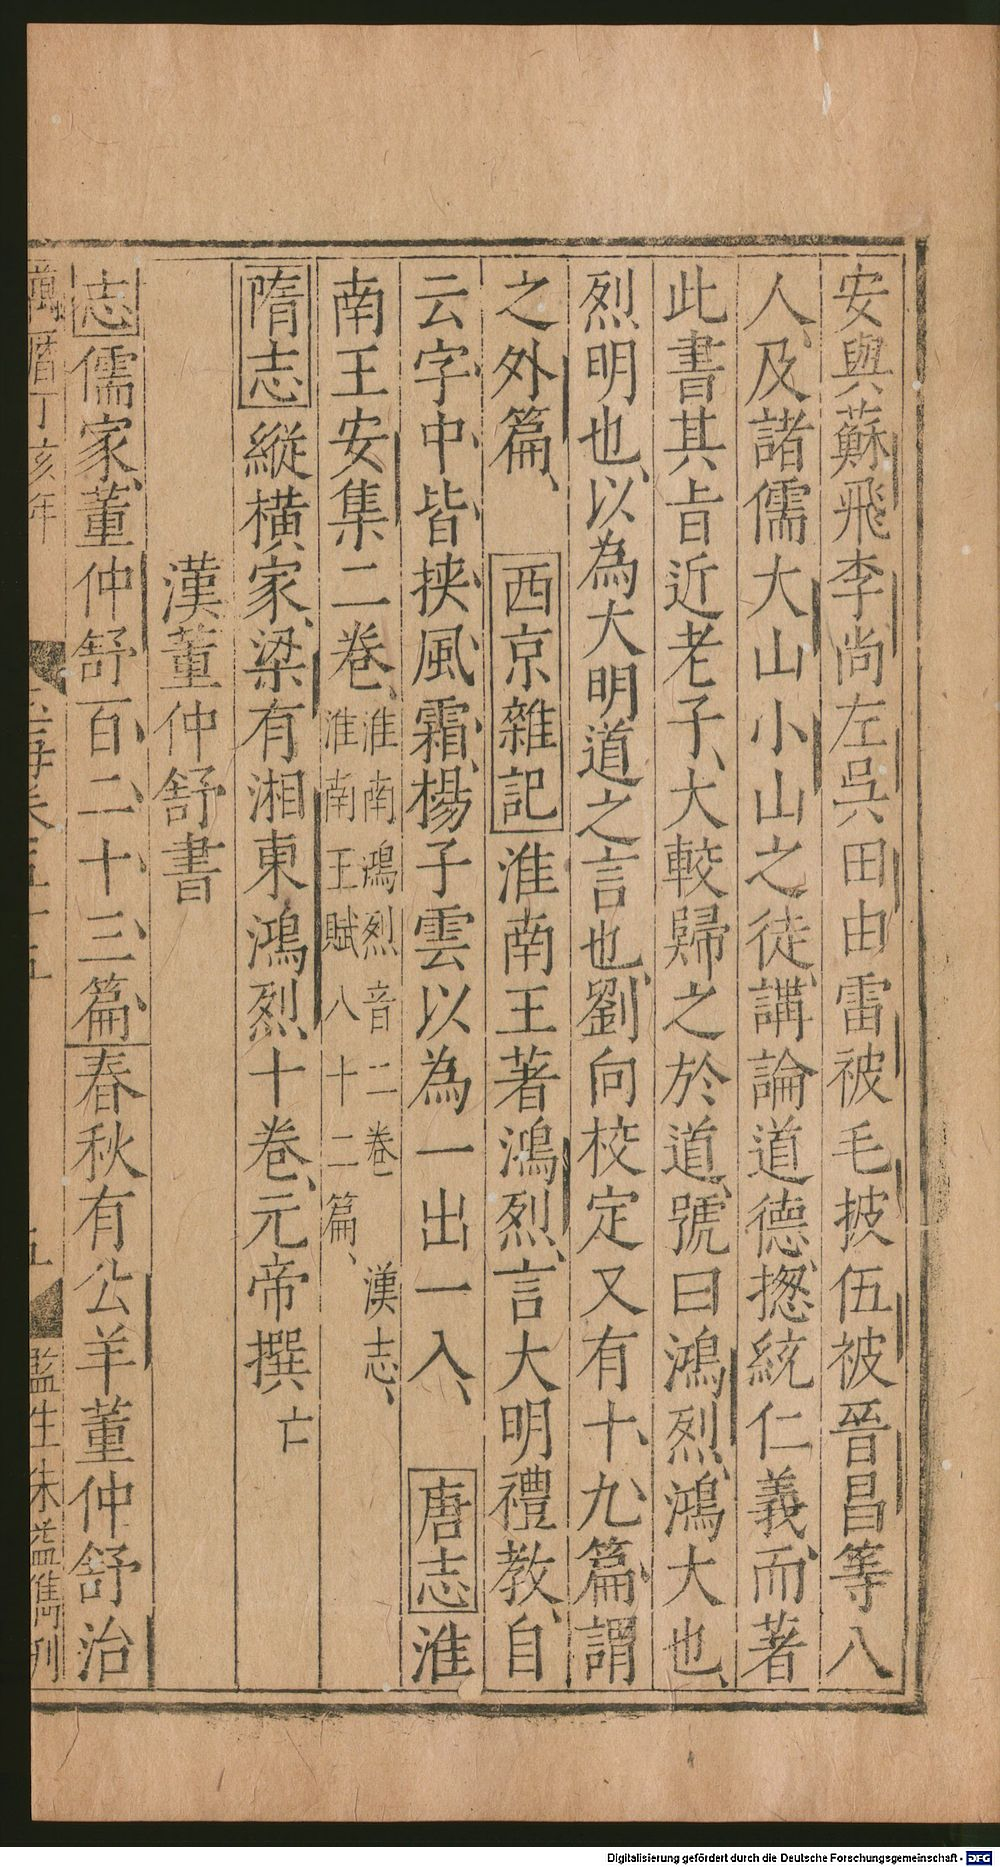 安與蘇飛李尚左吳田由雷被毛披伍被晉昌等八
人、及諸儒大山小山之徒、講論道德、揔統仁義、而著
此書其旨近老子、大較歸之於道、號曰鴻烈、鴻大也、
烈明也、以為大明道之言也、劉向校定又有十九篇、謂
之外篇、 西京雜記淮南王著鴻烈、言大明禮教、自
云字中皆挾風霜、楊子雲以為一出一入、 唐志淮
南王安集二卷、淮南鴻烈音二卷 漢志、
淮南王賦八十二篇、
隋志縱橫家、梁有湘東鴻烈十卷、元帝撰、亡
漢董仲舒書
志儒家、董仲舒百二十三篇、春秋有公羊董仲舒治
萬曆丁亥年 玉海卷五十五 五 監生朱謚雋刊
Digitalisierung gefördert durch die Deutsche Forschungsgemeinschaft - DFG